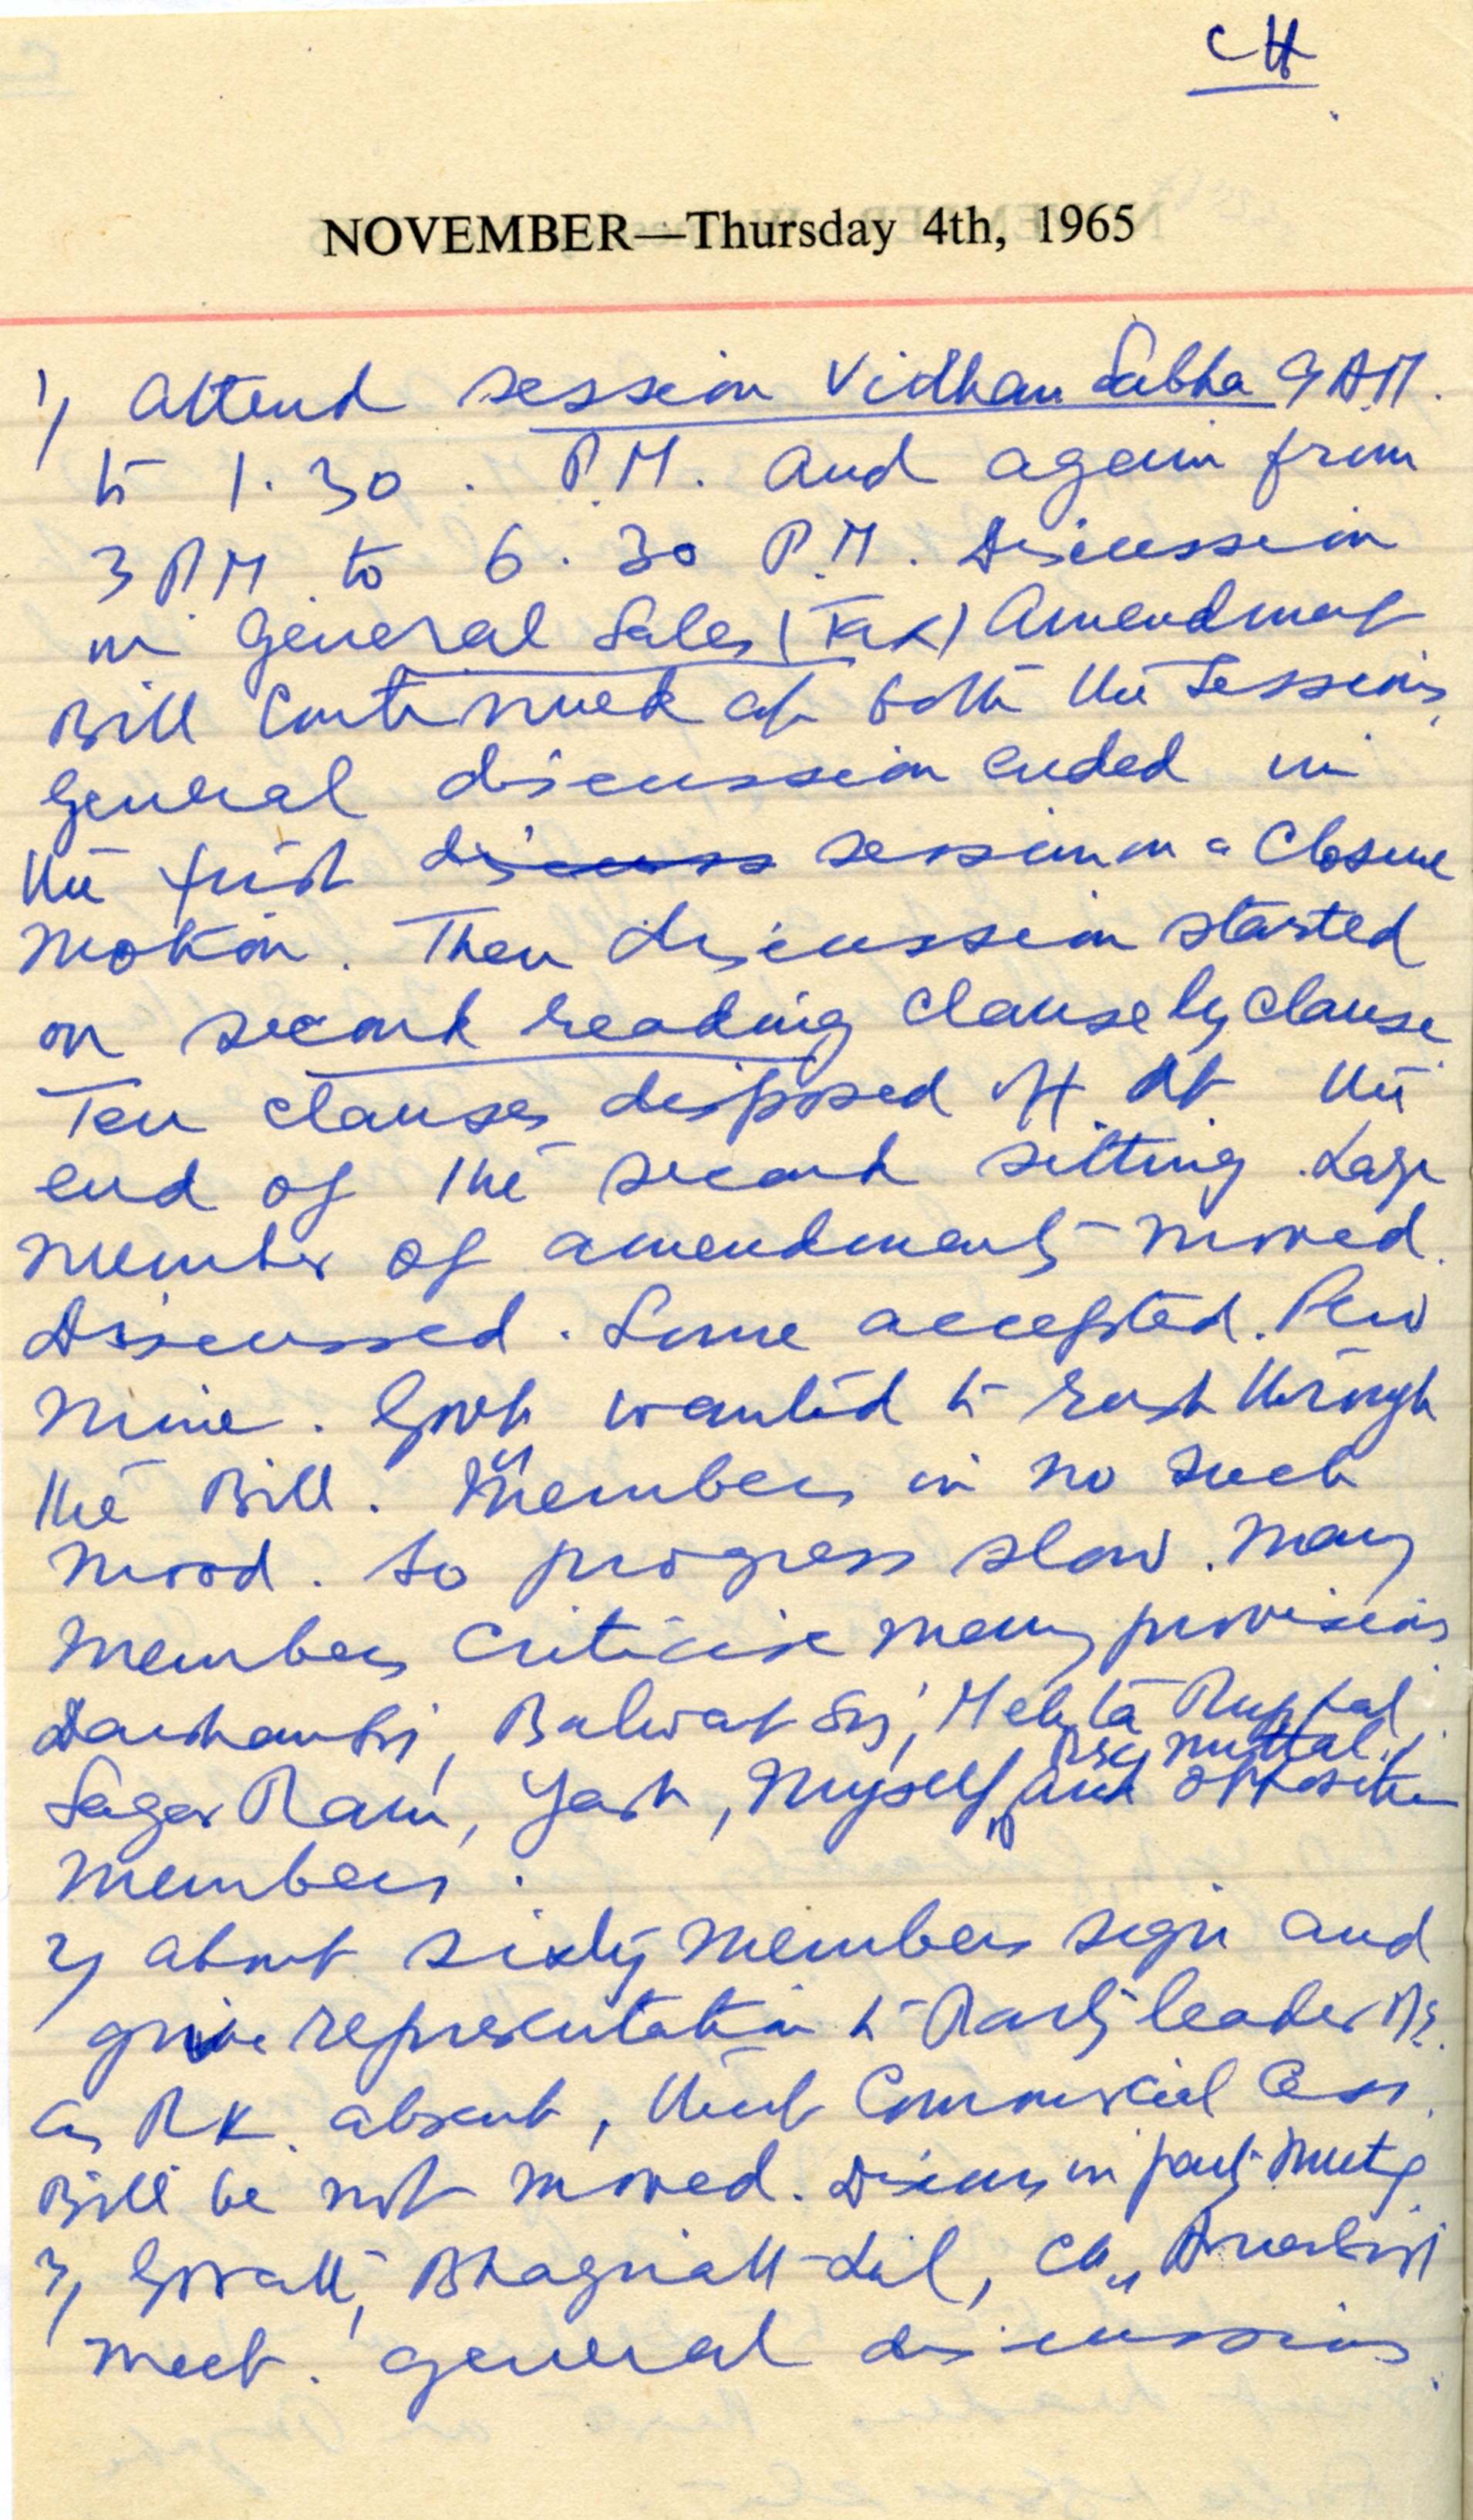 CH
NOVEMBER—Thursday 4th, 1965
1) Attend session Vidhan Sabha 9 A.M.
to 1.30. P.M. and again from
3 P.M. to 6.30 P.M. Discussion
on General Sales (Tax) Amendment
Bill Continued at both the sessions,
General discussion ended in
the first discuss session on a Closure
Motion. Then discussion started
on second reading clause by clause.
Ten clauses disposed off at the
end of the second sitting. Large
number of amendments moved.
Discussed. Some accepted. Few
mine. Govt wanted to rush through
the Bill. Members in no such
mood. So progress slow. Many
members criticise many provisions
Darshan Si, Balwat Si, Mehta Ruplal,
Mittal,
Sagar Ram, Yash, Myself, and opposition
members.
2) About sixty members sign and
give representation to Party leader
as R.K. absent, that Commercial
Bill be not moved. Discuss in party meeting
3) Bhagirath Lal, Ch.
meet. general discussions.